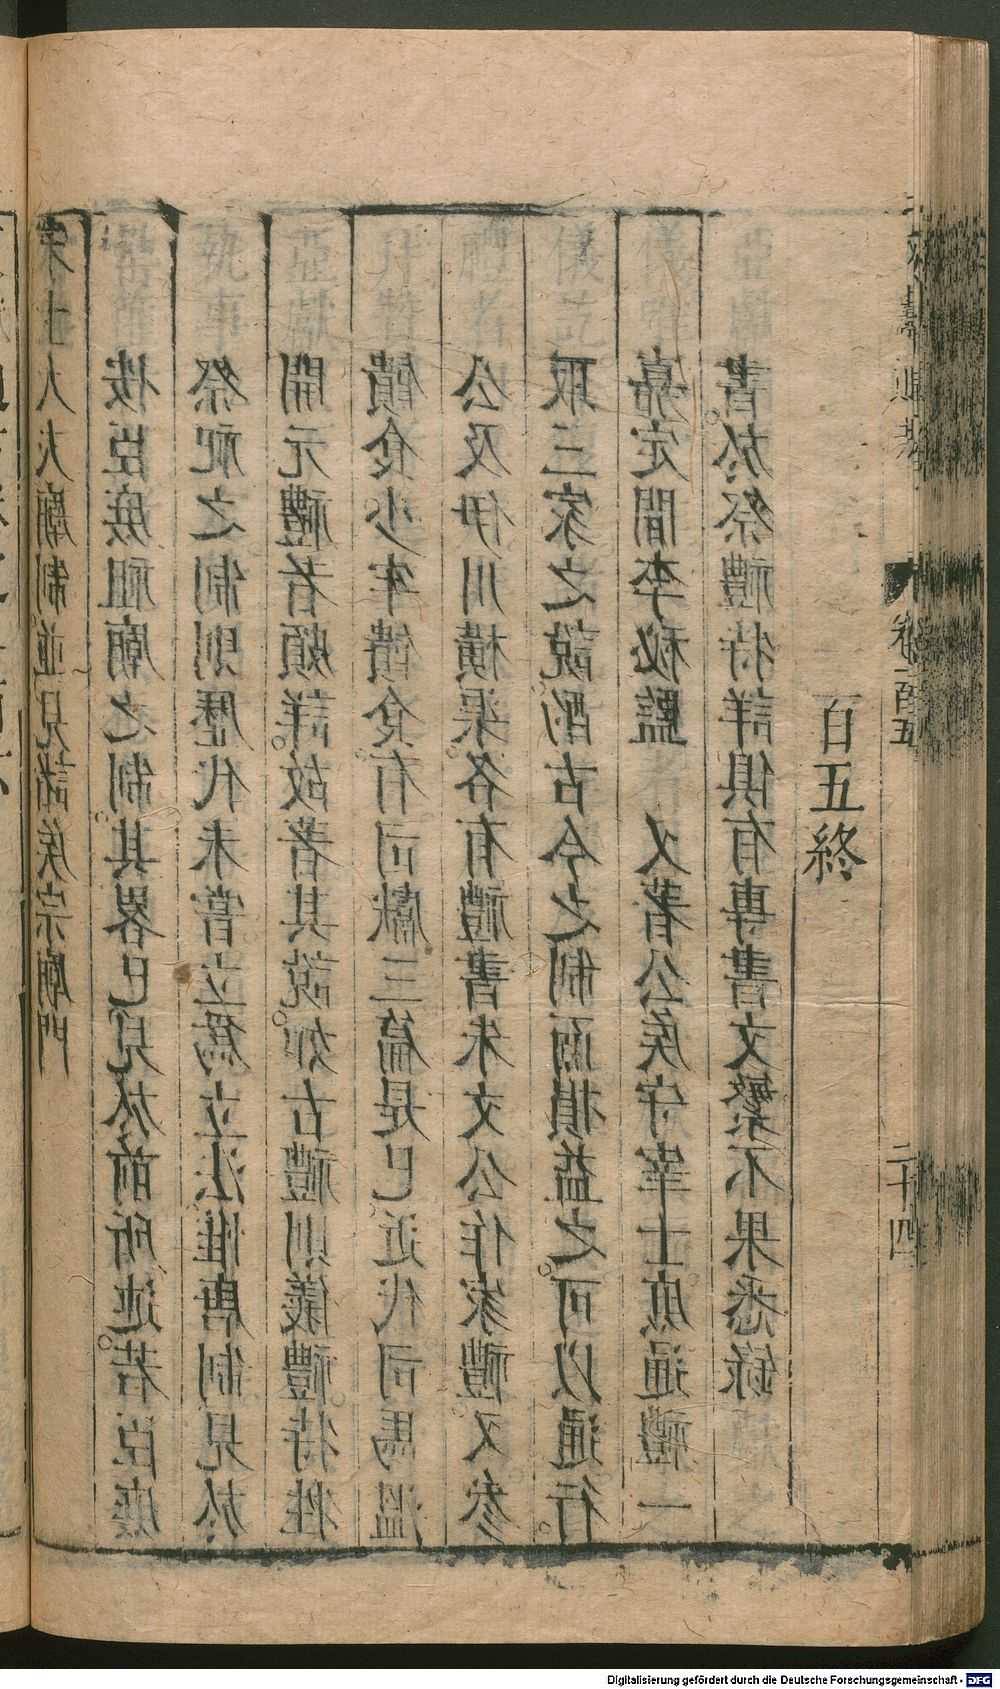 宋士大夫廟制並見諸侯宗廟門
按臣庶祖廟之制其畧已見於前所述若臣庶
祭祀之制則歷代未嘗立爲立法惟唐制見於
開元禮者頗詳故著其說如古禮則儀禮特牲
饋食少牢饋食有司獻三篇是已近代司馬溫
公及伊川橫渠各有禮書朱文公作家禮又參
取三家之說酌古今之制而損益之可以通行
嘉定間李秘監 又著公侯守宰士庶通禮一
書於祭禮特詳俱有專書文繁不果悉錄
百五終
卷一百五
二十四
Digitalisierung gefördert durch die Deutsche Forschungsgemeinschaft - DFG